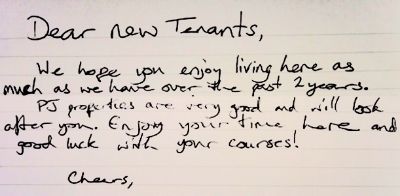 Dear new Tenants,
We hope you enjoy living here as
much as we have over the past 2 years.
PJ properties are very good and will look
after you. Enjoy your time here and
good luck with your courses!
Cheers,